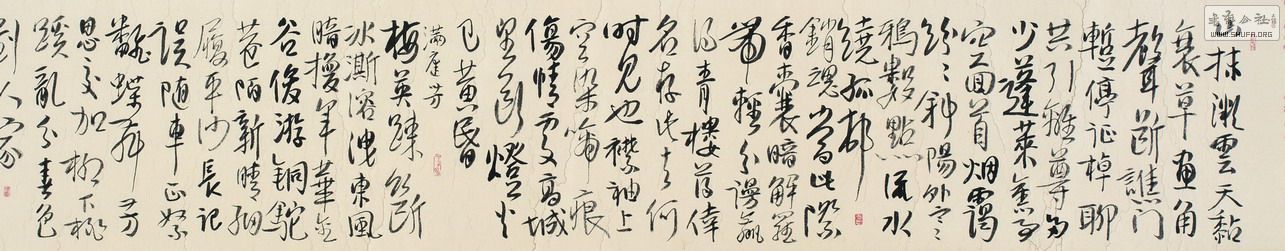 書法公社
WWW.SHUFA.ORG
山抹微雲天黏
衰草畫角
聲斷譙門
暫停征棹聊
共引離尊多
少蓬萊舊事
空回首烟靄
紛紛斜陽外寒
鴉數點流水
繞孤村
銷魂當此際
香囊暗解羅
帶輕分謾贏
得青樓薄倖
名存此去何
時見也襟袖上
空染啼痕
傷情處高城
望斷燈火
已黃昏
滿庭芳
梅英疎淡
冰澌溶洩東風
暗換年華金
谷俊游銅駝
巷陌新晴細
履平沙長記
誤隨車正絮
翻蝶舞芳
思交加柳下桃
蹊亂分春色
到人家